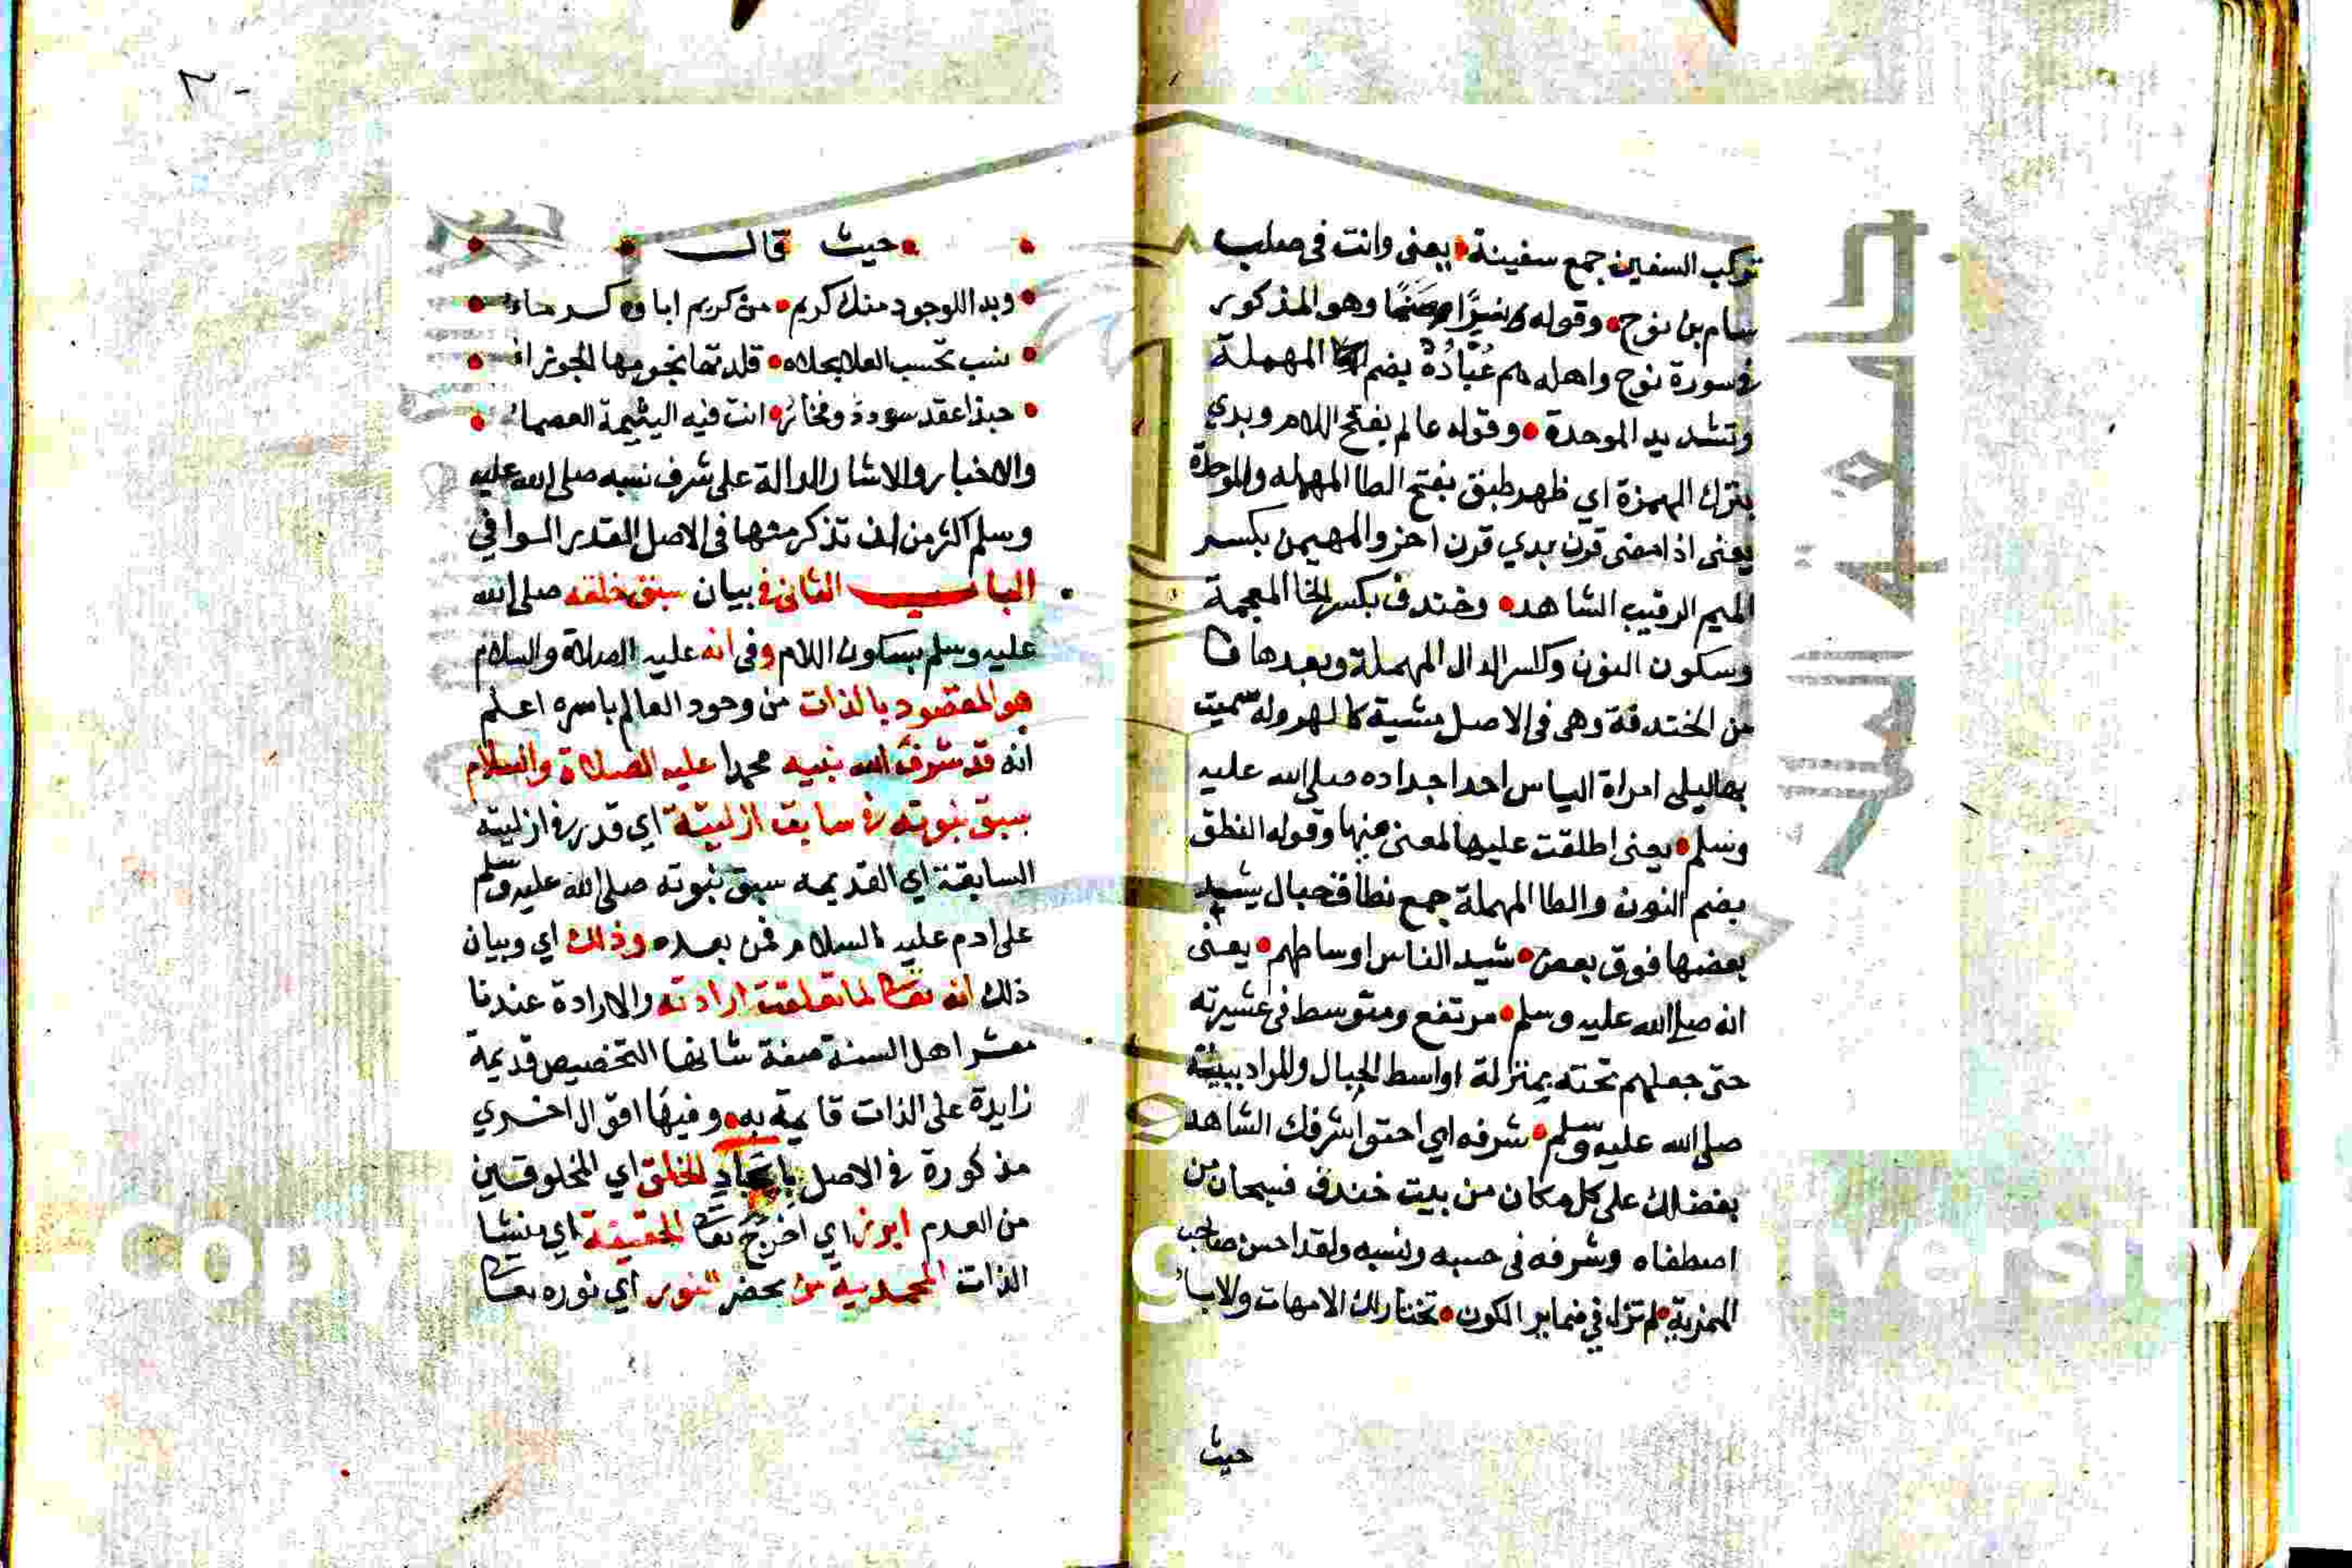 تركب السفين جمع سفينة يعنى وانت فى صلب
سام بن نوح وقوله ونسرًا صَنَمًا وهو المذكور
فى سورة نوح واهله هم عُبَّادُهُ بضم المهملة
وتشديد الموحدة وقوله عالم بفتح اللام وبدي
بترك الهمزة اي ظهر طبق بفتح الطا المهمله والموحدة
يعنى اذا مضى قرن بدي قرن اخر والمهيمن بكسر
الميم الرقيب الشاهد وخندف بكسر الخا المعجمة
وسكون النون وكسر الدال المهملة وبعدها فا
من الخندفة وهى فى الاصل مشية كالهرولة سميت
بها ليلى امراة الياس احد اجداده صلى الله عليه
وسلم يعنى اطلقت عليها لمعنى منها وقوله النطق
بضم النون والطا المهملة جمع نطاق حبال يشد
بعضها فوق بعض شيد الناس اوساطهم يعنى
انه صلى الله عليه وسلم مرتفع ومتوسط فى عشيرته
حتى جعلهم تحته بمنزلة اواسط الجبال والمراد ببيته
صلى الله عليه وسلم شرفه اي احتوا شرفك الشاهد
بفضلك على كل مكان من بيت خندف فسبحان من
اصطفاه وشرفه فى حسبه ونسبه ولقد احسن صاحب
الهمزية لم تزل في ضماير الكون تختار لك الامهات والابا
حيث
حيث قال
وبدا للوجود منك كريم من كريم اباوه كرماء
نسب تحسب العلا بحلاه قلدتها نجومها الجوزاء
حبذا عقد سوددَ وفخار انت فيه اليتيمة العصماء
والاخبار والاشار الدالة على شرف نسبه صلى الله عليه
وسلم اكثر من ان تذكر منها فى الاصل القدر الوافي
الباب الثانى فى بيان سبق خلقه صلى الله
عليه وسلم بسكون اللام وفى انه عليه الصلاة والسلام
هو المقصود بالذات من وجود العالم باسره اعلم
انه قد شرف الله نبيه محمدا عليه الصلاة والسلام
بسبق نبوته فى سابق ازليته اي قدر فى ازليته
السابقة اي القديمه سبق نبوته صلى الله عليه وسلم
على ادم عليه السلام فمن بعده وذلك اي وبيان
ذلك انه تعالى لما تعلقت ارادته والارادة عندنا
معشر اهل السنة صفة شانها التخصيص قديمة
زايدة على الذات قايمة به وفيها اقوال اخري
مذكورة فى الاصل بايجاد الخلق اي المخلوقين
من العدم ابرز اي اخرج تعالى الحقيقة اي منشا
الذات المحمديه من محض النور اي نوره تعالى